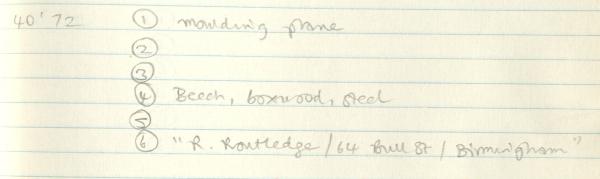 40'72 ① moulding plane
②
③
④ Beech, boxwood, steel
⑤
⑥ "R. Routledge / 64 Bull St / Birmingham"